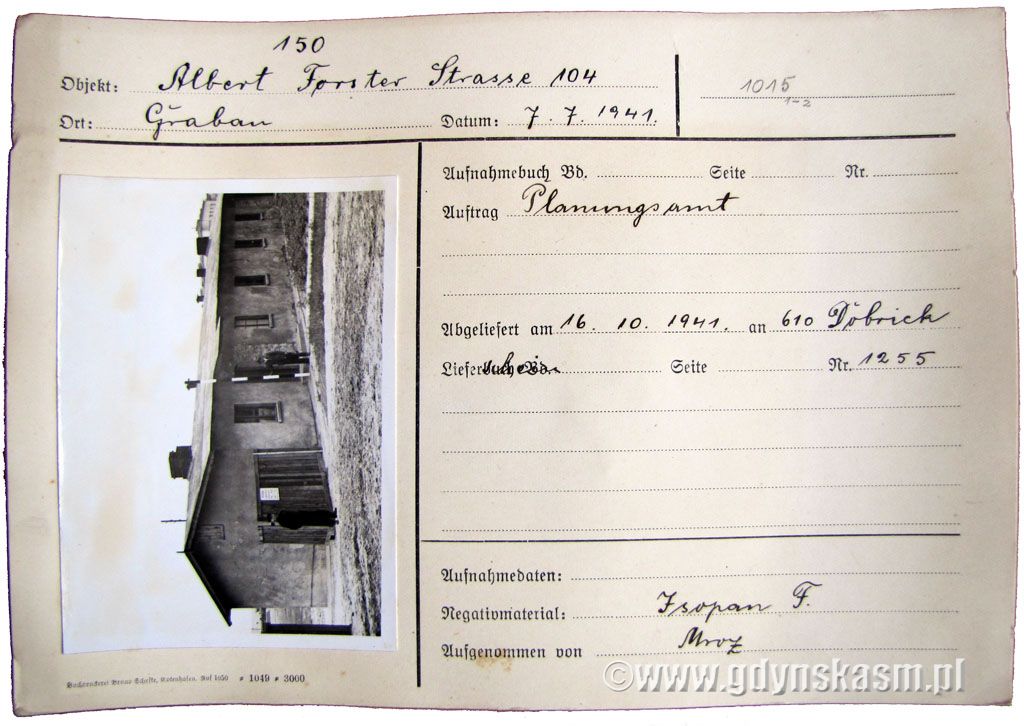 150
Objekt: Albert Forster Strasse 104
1015
1-2
Ort: Grabau Datum: 7. 7. 1941.
Aufnahmebuch Bd. Seite Nr.
Auftrag Planungsamt
Abgeliefert am 16. 10. 1941. an 610 Döbrick
Liefer Seite Nr. 1255
Aufnahmedaten:
Negativmaterial: Isopan F.
Aufgenommen von Mroz
Buchdruckerei Bruno Scheffke, Gotenhafen. Ruf 1950 * 1049 * 3000
©www.gdynskasm.pl